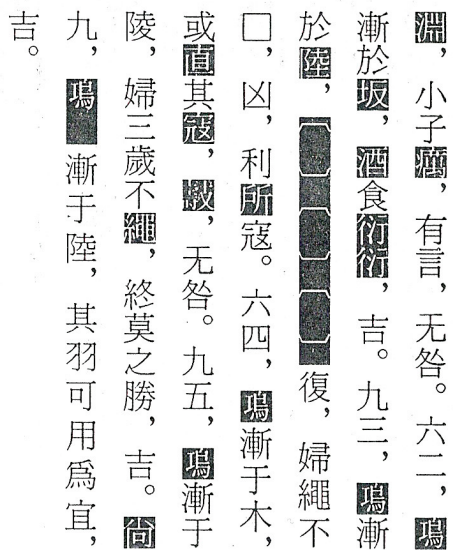 淵，小子癘，有言，无咎。六二，鳿
漸於坂，酒食衍衍，吉。九三，鳿漸
於陸，復，婦繩不
□，凶，利所寇。六四，鳿漸于木，
或直其寇，，无咎。九五，鳿漸于
陵，婦三歲不繩，終莫之勝，吉。尚
九，鳿漸于陸，其羽可用爲宜，
吉。